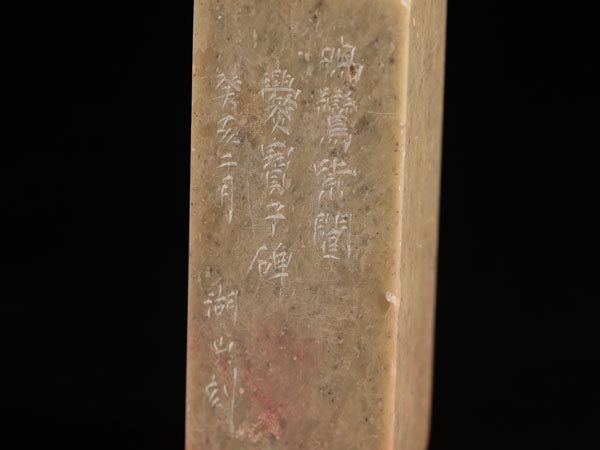 鳴鸞紫闥
爨寶子碑
癸亥二月 湖山刻